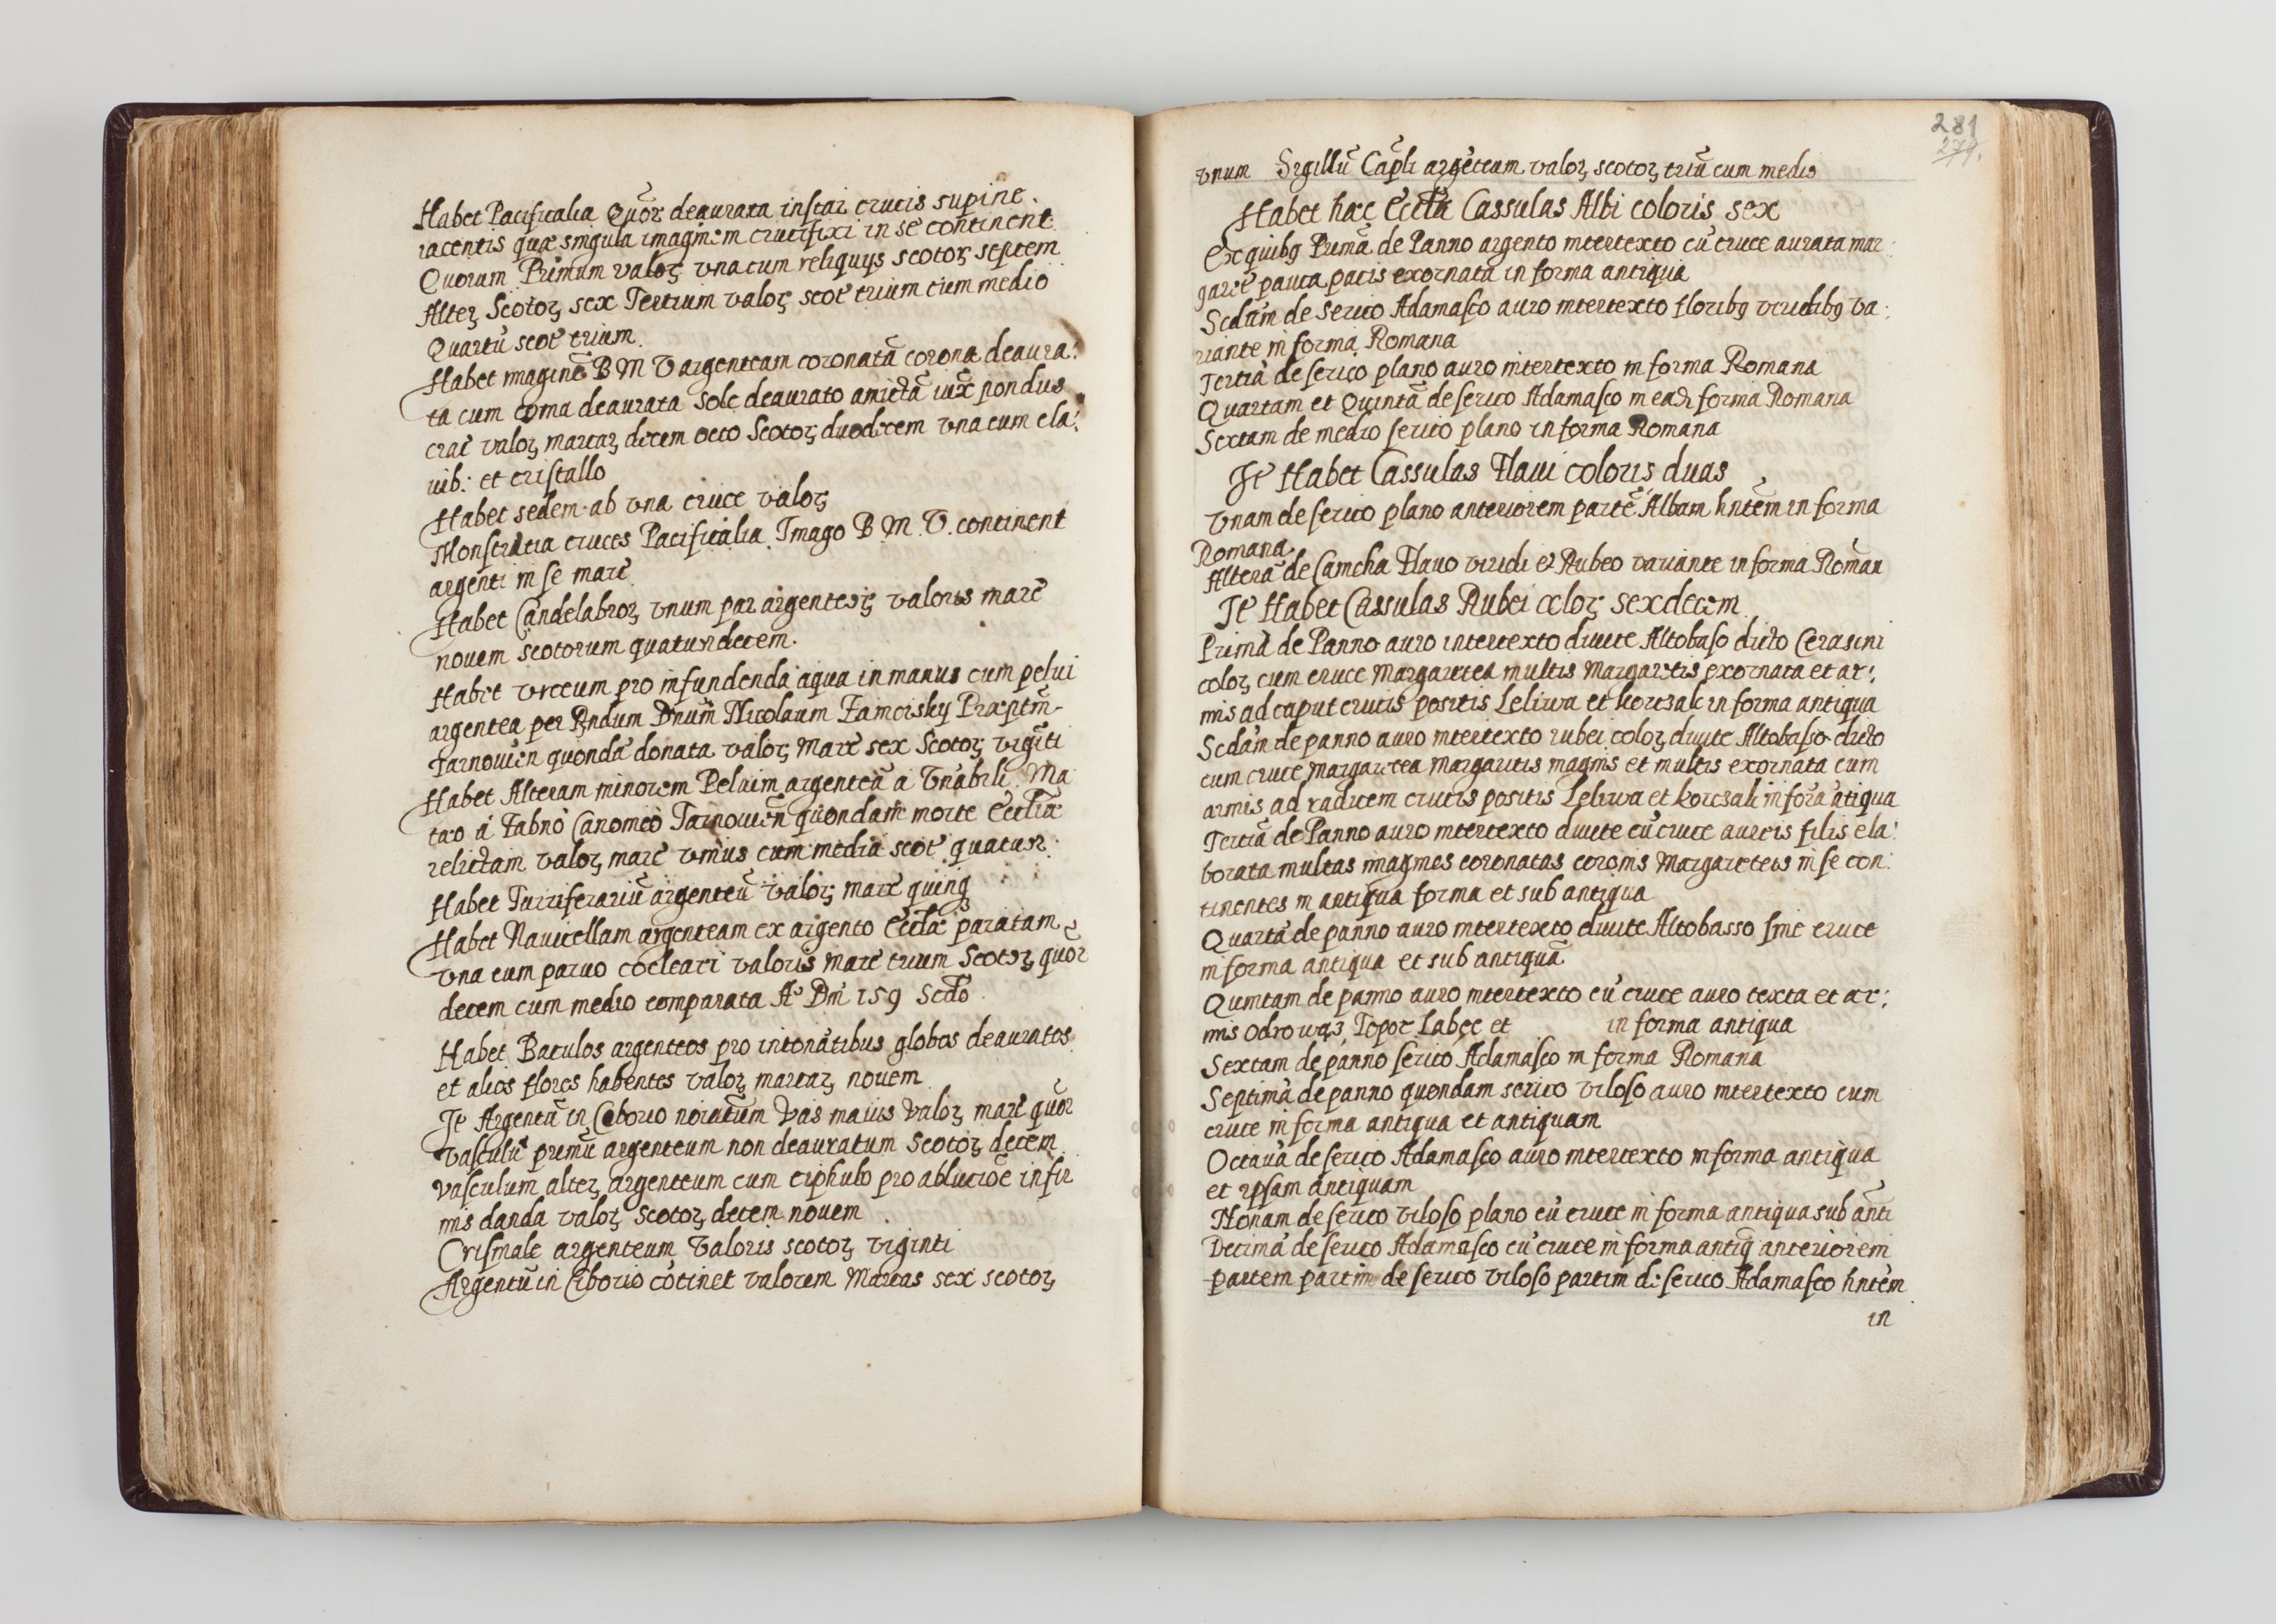 Habet Pacificalia Quōr deaurata instar crucis supine.
iacentis quæ singula imaginem crucifixi in se continent
Quorum Primum valoꝝ vna cum reliquijs scotoꝝ septem
Alteꝝ Scotoꝝ sex Tertium valoꝝ scot trium cum medio
Quartū scot trium.
Habet imaginē B M V argenteam coronatā corona deaura:
ta cum coma deaurata Sole deaurato amictā iux pondus
crac̄ valoꝝ marcaꝝ decem octo Scotoꝝ duodecem vna cum cla:
uib: et cristallo
Habet sedem ab vna cruce valoꝝ
Monstratia cruces Pacificalia Imago B M. V. continent
argenti in se marc̄
Habet Candelabroꝝ vnum par argenteoꝝ valoris marc̄
nouem scotorum quatundecem.
Habet vrceum pro infundenda aqua in manus cum pelui
argentea per Rndum Dnum̄ Nicolaum Zamoisky Præptm̄
Tarnouien quondā donata valoꝝ Marc̄ sex Scotoꝝ vigīti
Habet Alteram minorem Peluim argenteū a Vnabili Ma
tæo a Zabno Canonico Tarnouien̄ quondam morte Eccliā
relictam valoꝝ marc̄ vnius cum media scot̄ quatur:
Habet Turriferariū argenteū valoꝝ marc̄ quinqꝫ
Habet Nauicellam argenteam ex argento Eccla paratam
vna cum paruo cocleari valoris marc̄ trium Scotoꝝ quōr
decem cum medio comparata A° Dn̄i 159 Scdō
Habet Baculos argenteos pro intonātibus globos deauratos
et alios flores habentes valoꝝ marcaꝝ nouem
It̄ Argentū in Ciborio noiatūm Vas maius valoꝝ marc̄ quōr
vasculū primū argenteum non deauratum Scotoꝝ decem
vasculum alteꝝ argenteum cum ciphulo pro ablucioe infir
mis danda valoꝝ scotoꝝ decem nouem
Crismale argenteum valoris scotoꝝ viginti
Argentū in Ciborio cōtinet valorem Marcas sex scotoꝝ
281
279.
vnum Sigillū Capli argēteam valoꝝ scotoꝝ triū cum medio
Habet hæc Eccla Cassulas Albi coloris sex
Ex quibꝫ Primā de Panno argento intertexto cū cruce aurata mar:
garit̄ pauca pacis exornata in forma antiqua
Scdam de Serico Adamasco auro intertexto floribꝫ viridibꝫ va:
riante in forma Romana
Tertiā de serico plano auro intertexto in forma Romana
Quartam et Quintā de serico Adamasco in eadē forma Romana
Sextam de medio serico plano in forma Romana
It̄ Habet Cassulas Flaui coloris duas
Vnam de serico plano anteriorem partē Albam hntem in forma
Romana
Alterā de Camcha Flauo viridi et Rubeo variante in forma Roman
It̄ Habet Cassulas Rubei coloꝝ sexdecem
Primā de Panno auro intertexto diuite Altobaso dicto Cerasini
coloꝝ cum cruce Margaretea multis Margaretis exornata et ar:
mis ad caput crucis positis Leliwa et korczak in forma antiqua
Scdam de panno auro intertexto rubei coloꝝ diuite Altobasso dicto
cum cruce Margaretea Margaritis magnis et multis exornata cum
armis ad radicem crucis positis Leliwa et korczak in forā ātiqua
Tertiā de Panno auro intertexto diuite cū cruce aureis filis ela:
borata multas imagines coronatas coronis Margareteis in se con:
tinentes in antiqua forma et sub antiqua
Quartā de panno auro intertexto diuite Altobasso sine cruce
in forma antiqua et sub antiquā
Quintam de panno auro intertexto cū cruce auro texta et ar:
mis Odrowąz, Topor Labęc et in forma antiqua
Sextam de panno serico Adamasco in forma Romana
Septimā de panno quondam serico viloso auro intertexto cum
cruce in forma antiqua et antiquam
Octauā de serico Adamasco auro intertexto in forma antiqua
et ipsam antiquam
Nonam de serico viloso plano cū cruce in forma antiqua sub anti
Decimā de serico Adamasco cū cruce in forma antiq anteriorem
partem partim de serico viloso partim de serico Adamasco hntem
in